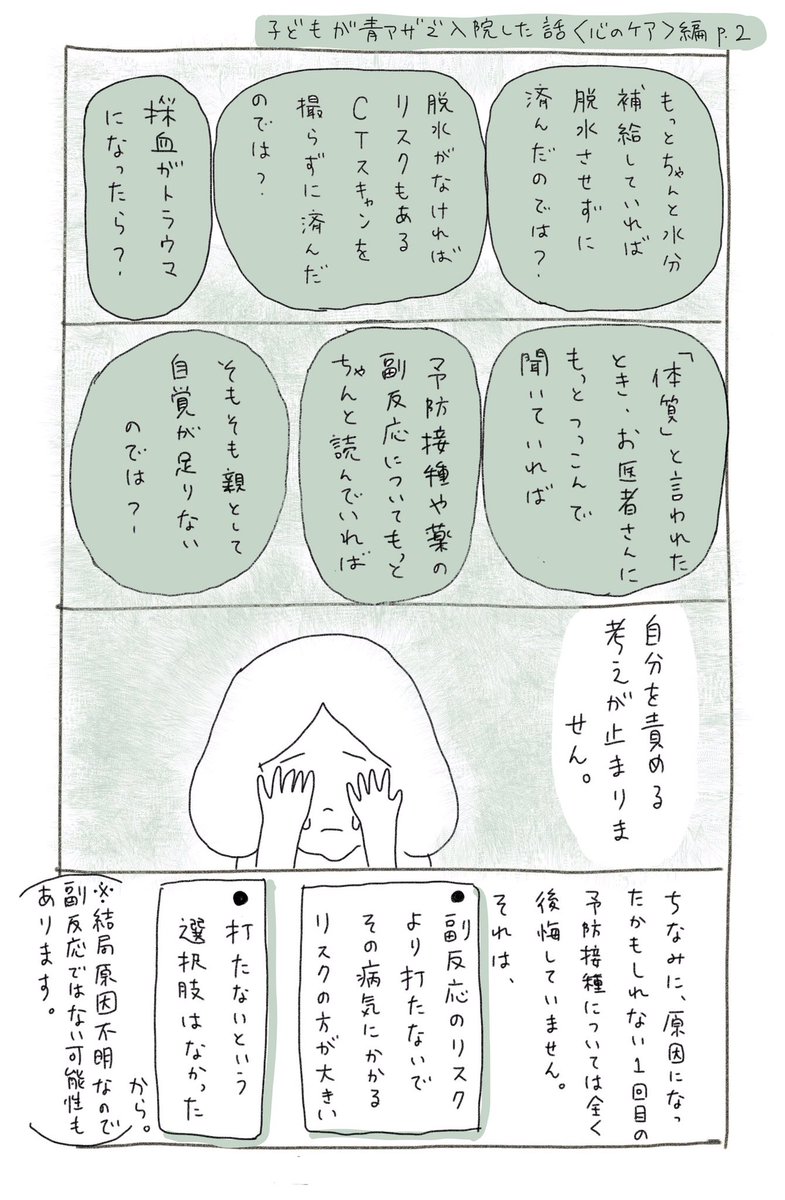 子どもが青アザで入院した話〈心のケア〉編 p.2
もっとちゃんと水分
補給していれば
脱水させずに
済んだのでは？
脱水がなければ
リスクもある
CTスキャンを
撮らずに済んだ
のでは？
採血がトラウマ
になったら？
「体質」と言われた
とき、お医者さんに
もっとつっこんで
聞いていれば
予防接種や薬の
副反応についてもっと
ちゃんと読んでいれば
そもそも親として
自覚が足りない
のでは？
自分を責める
考えが止まりま
せん。
ちなみに、原因になっ
たかもしれない1回目の
予防接種については全く
後悔していません。
それは、
●副反応のリスク
より打たないで
その病気にかかる
リスクの方が大きい
●打たないという
選択肢はなかった
から。
※結局原因不明なので
副反応ではない可能性も
あります。